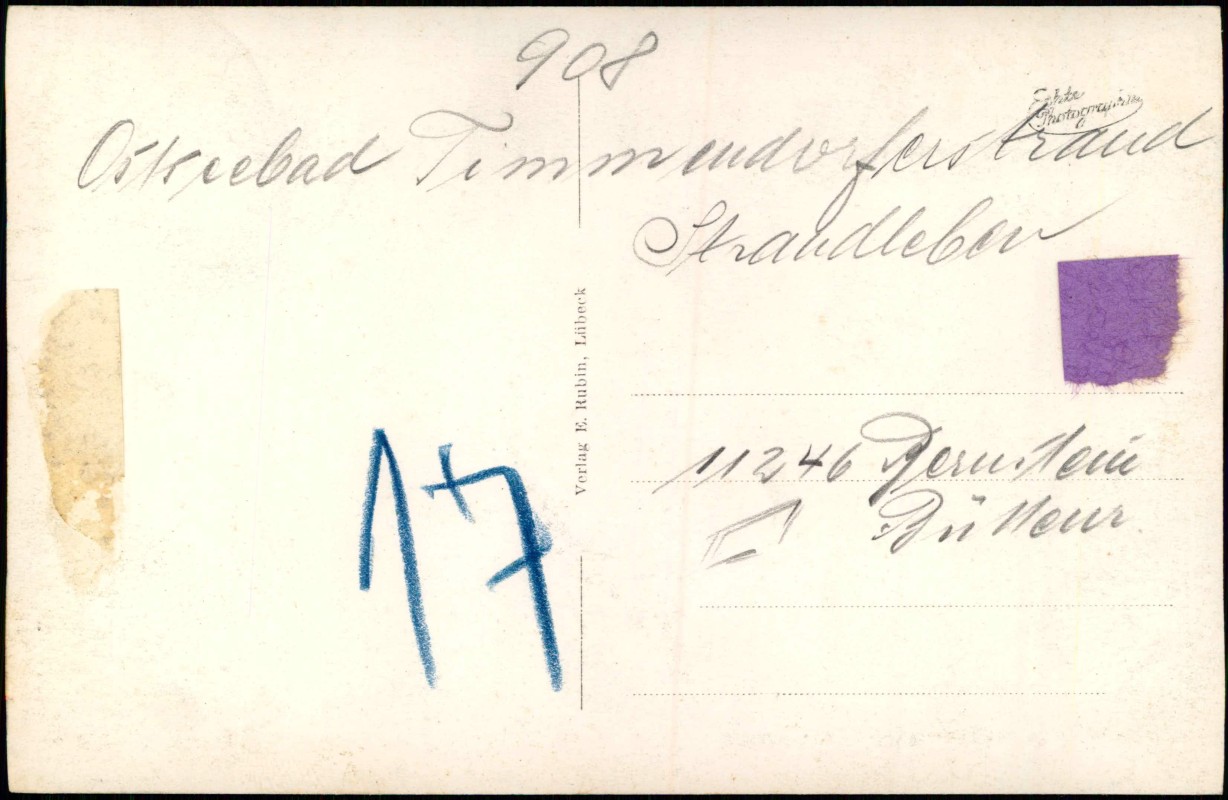 908
Echte
Photographie
Ostseebad Timmendorferstrand
Strandleben
Verlag E. Rubin, Lübeck
11246 Bernstein
Büttenr
17